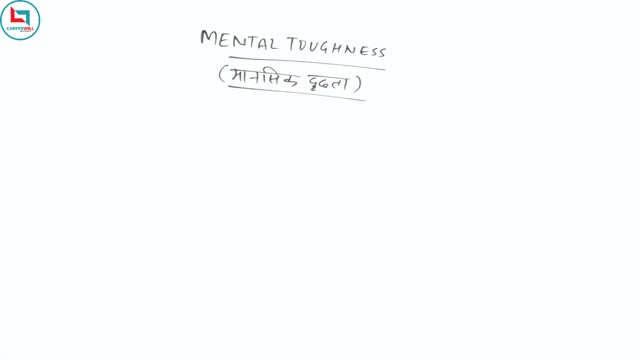 CAREERWILL
MENTAL TOUGHNESS
(मानसिक दृढता)